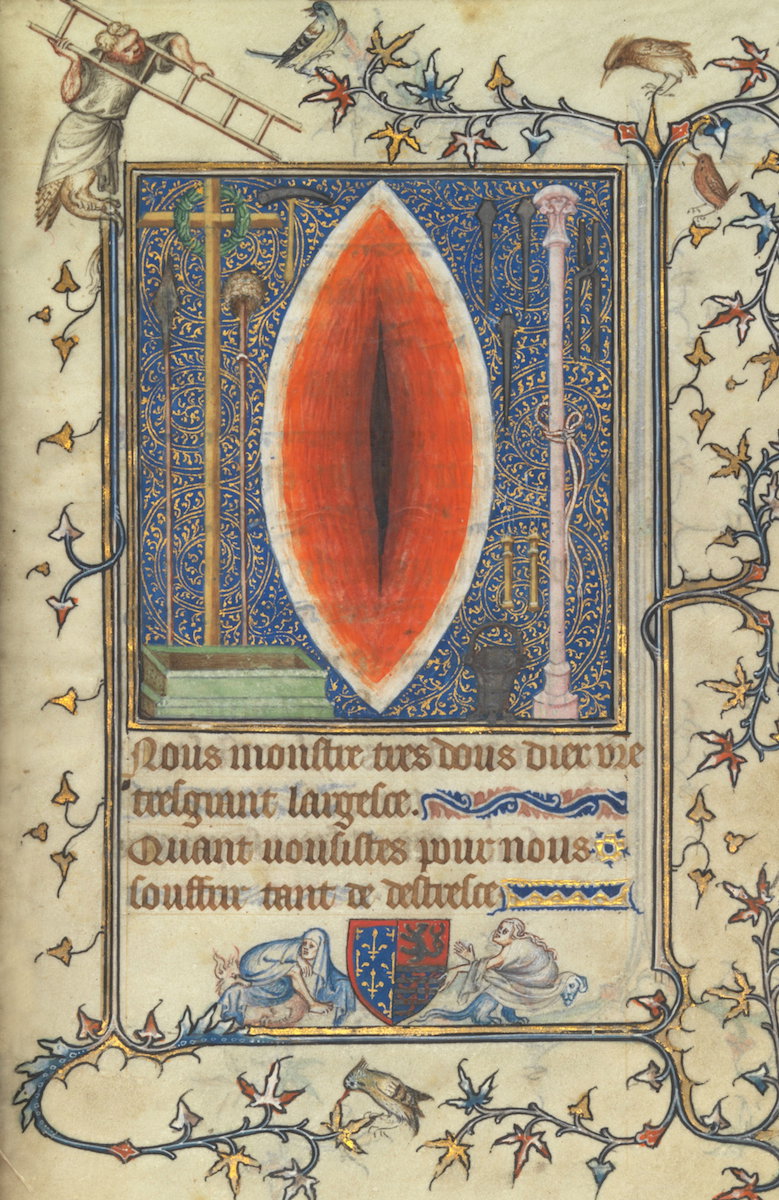 Nous monstre tres dous diex vre
tresgrant largesce.
Quant uousistes pour nous
souffrir tant de destresce